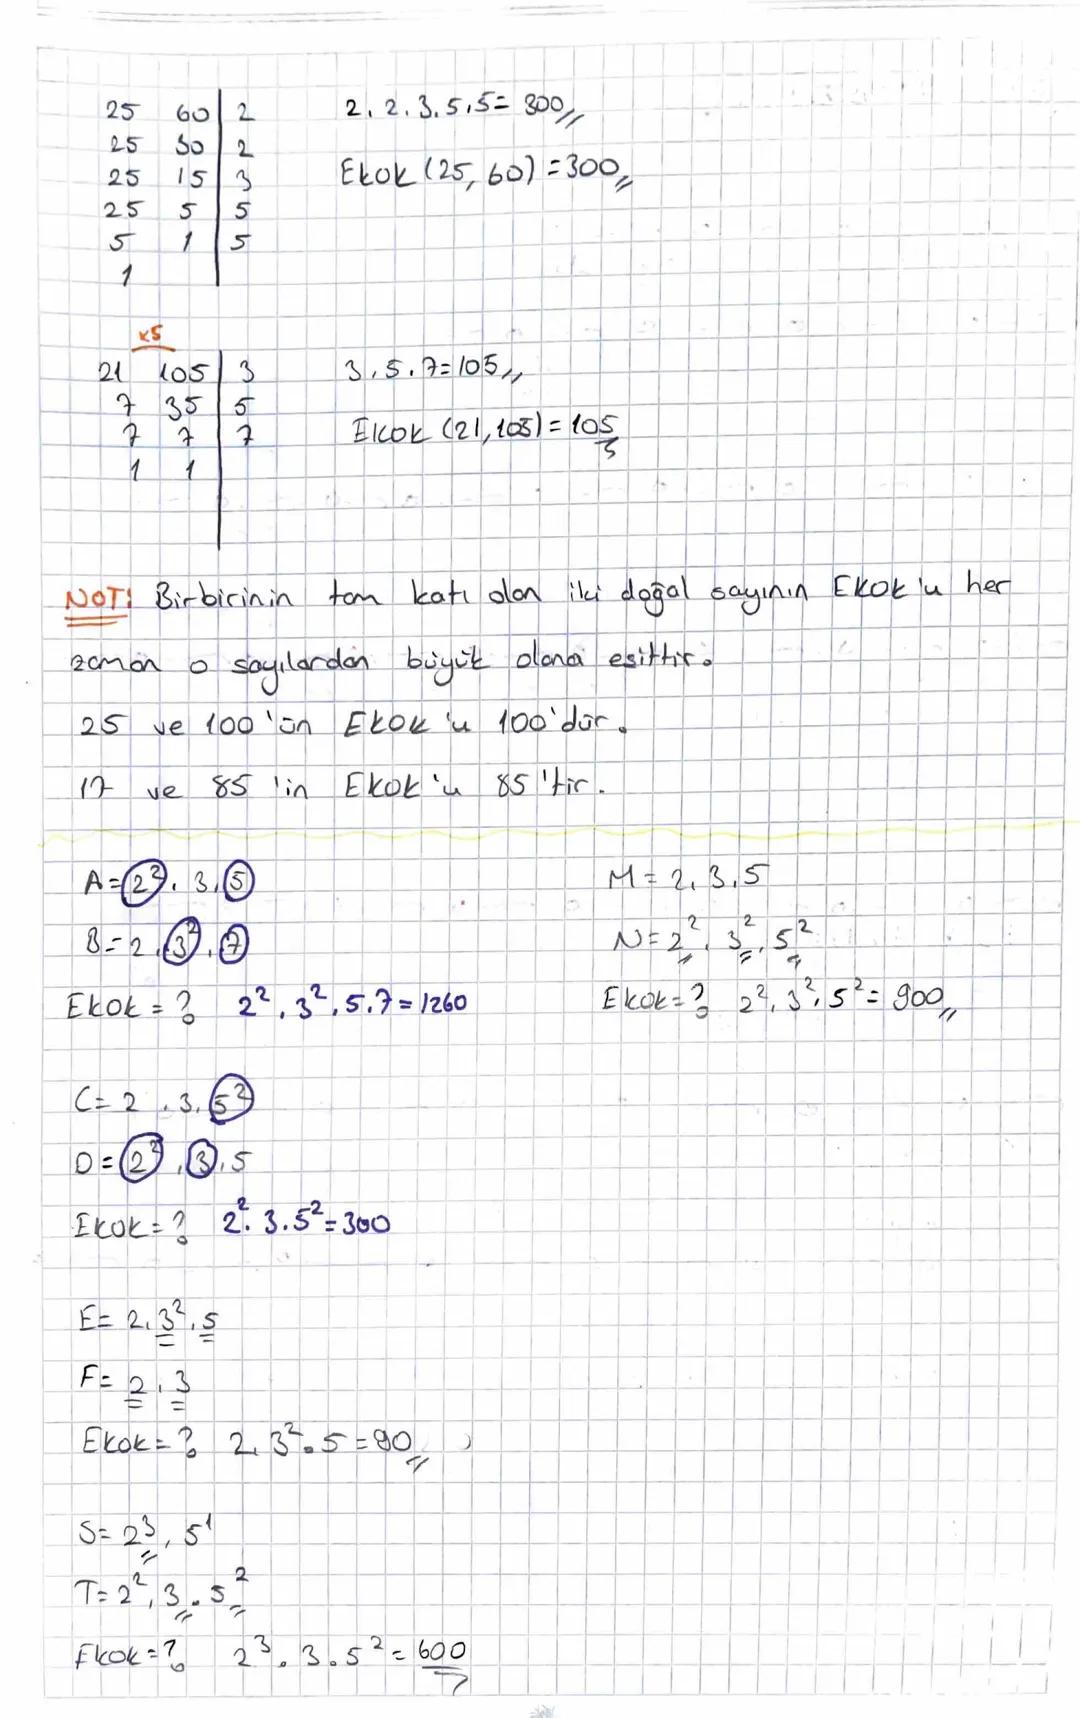 25 60 | 2
25 30 | 2
25 15 | 3
25 5 | 5
5 1 | 5
1
2.2.3.5.5=300
Ekok (25, 60) = 300
x5
21 105 | 3
7 35 | 5
7 7 | 7
1 1
3.5.7=105
Ekok (21,105) = 105
NOT: Birbirinin tam katı olan iki doğal sayının EKOK'u her
zaman o sayılardan büyük olana eşittir.
25 ve 100'ün EKOK'u 100'dür.
17 ve 85'in EKOK'u 85'tir.
A=2².3.5
B=2.3².7
Ekok=? 2².3².5.7=1260
M=2.3.5
N=2².3².5²
Ekok=? 2².3².5²=900
C=2.3.5²
D=2².3.5
Ekok=? 2².3.5²=300
E=2.3².5
F=2.3
Ekok=? 2.3².5=90
S=2³.5¹
T=2².3.5²
Ekok=? 2³.3.5²=600